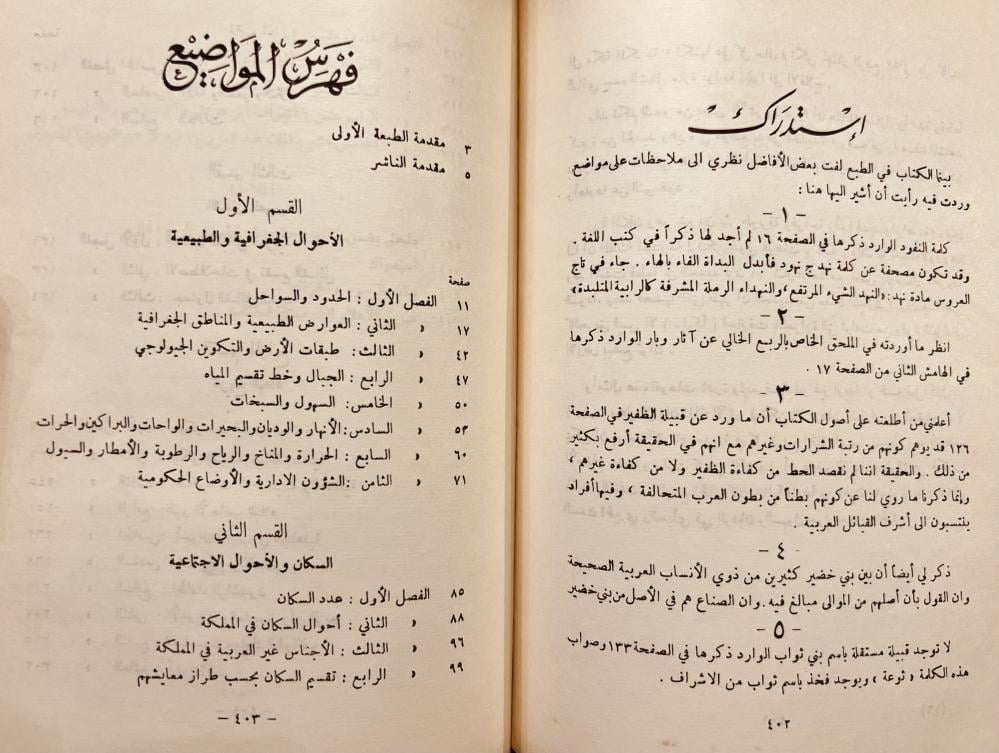 إستدراك
بينما الكتاب في الطبع لفت بعض الأفاضل نظري الى ملاحظات على مواضع
وردت فيه رأيت أن أشير اليها هنا :
- ١ -
كلمة النفود الوارد ذكرها في الصفحة ١٦ لم أجد لها ذكراً في كتب اللغة .
وقد تكون مصحفة عن كلمة نهد ج نهود فأبدل البداة الفاء بالهاء . جاء في تاج
العروس مادة نهد : «النهد الشيء المرتفع، والنهداء الرملة المشرفة كالرابية المتلبدة»
- ٢ -
انظر ما أوردته في الملحق الخاص بالربع الخالي عن آثار وبار الوارد ذكرها
في الهامش الثاني من الصفحة ١٧ .
- ٣ -
أعلمني من أطلعته على أصول الكتاب أن ما ورد عن قبيلة الظفير في الصفحة
١٢٦ قد يوهم كونهم من رتبة الشرارات وغيرهم مع انهم في الحقيقة أرفع بكثير
من ذلك . والحقيقة اننا لم نقصد الحط من كفاءة الظفير ولا من كفاءة غيرهم ،
وإنما ذكرنا ما روي لنا عن كونهم بطناً من بطون العرب المتحالفة ، وفيها أفراد
ينتسبون الى أشرف القبائل العربية .
- ٤ -
ذكر لي أيضاً أن بين بني خضير كثيرين من ذوي الأنساب العربية الصحيحة
وان القول بأن أصلهم من الموالى مبالغ فيه . وان الصناع هم في الأصل من بني خضير
- ٥ -
لا توجد قبيلة مستقلة باسم بني ثواب الوارد ذكرها في الصفحة ١٣٣ وصواب
هذه الكلمة « ثوعة » ويوجد فخذ باسم ثواب من الاشراف .
٤٠٢
فهرس المواضيع
مقدمة الطبعة الأولى ٣
مقدمة الناشر ٥
القسم الأول
الأحوال الجغرافية والطبيعية
صفحة
الفصل الأول : الحدود والسواحل ١١
» الثاني : العوارض الطبيعية والمناطق الجغرافية ١٧
» الثالث : طبقات الأرض والتكوين الجيولوجي ٤٢
» الرابع : الجبال وخط تقسيم المياه ٤٧
» الخامس : السهول والسبخات ٥٠
» السادس : الأنهار والوديان والبحيرات والواحات والبراكين والحرات ٥٣
» السابع : الحرارة والمناخ والرياح والرطوبة والأمطار والسيول ٦٠
» الثامن : الشؤون الادارية والأوضاع الحكومية ٧١
القسم الثاني
السكان والأحوال الاجتماعية
الفصل الأول : عدد السكان ٨٥
» الثاني : أحوال السكان في المملكة ٨٨
» الثالث : الأجناس غير العربية في المملكة ٩٦
» الرابع : تقسيم السكان بحسب طراز معايشهم ٩٩
- ٤٠٣ -